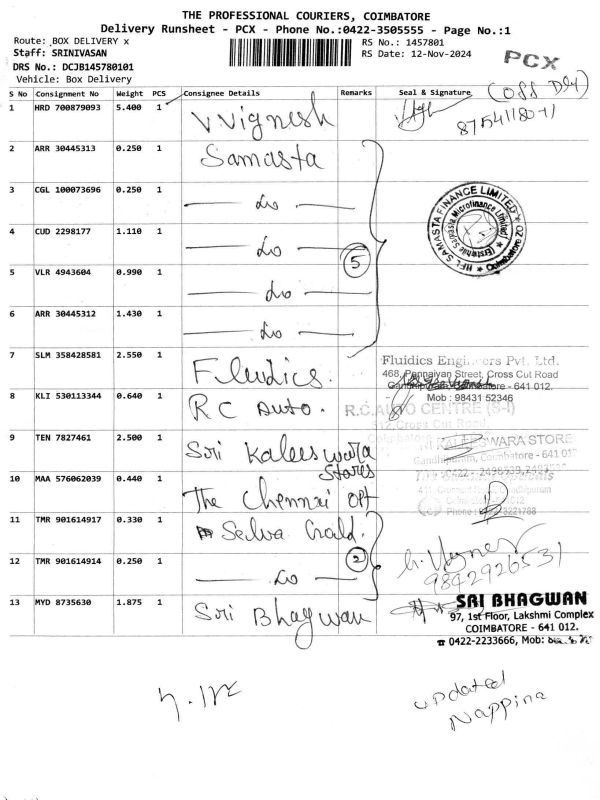 THE PROFESSIONAL COURIERS, COIMBATORE
Delivery Runsheet - PCX - Phone No.:0422-3505555 - Page No.:1
Route: BOX DELIVERY x
RS No.: 1457801
Staff: SRINIVASAN
RS Date: 12-Nov-2024
PCX
DRS No.: DCJB145780101
Vehicle: Box Delivery
S No Consignment No Weight PCS Consignee Details Remarks Seal & Signature
1 HRD 700879093 5.400 1 V.Vignesh
2 ARR 30445313 0.250 1 Samasta
3 CGL 100073696 0.250 1 do
4 CUD 2298177 1.110 1 do
5
5 VLR 4943604 0.990 1 do
6 ARR 30445312 1.430 1 do
HFL SAMASTA FINANCE LIMITED
Coimbatore ZO
7 SLM 358428581 2.550 1 Fluidics.
Fluidics Engineers Pvt. Ltd.
468, Pappaiyan Street, Cross Cut Road
Gandhipuram, Coimbatore - 641 012.
Mob : 98431 52346
8 KLI 530113344 0.640 1 RC Auto.
R.C.AUTO CENTRE
Cross Cut Road
9 TEN 7827461 2.500 1 Sri Kaleeswara Stores
KALEESWARA STORE
Gandhipuram, Coimbatore - 641 01
10 MAA 576062039 0.440 1 The Chennai opt
11 TMR 901614917 0.330 1 Selva Gold.
2
12 TMR 901614914 0.250 1 do
9842926531
13 MYD 8735630 1.875 1 Sri Bhagwan
SRI BHAGWAN
97, 1st Floor, Lakshmi Complex
COIMBATORE - 641 012.
☎ 0422-2233666, Mob:
updated
Nappina